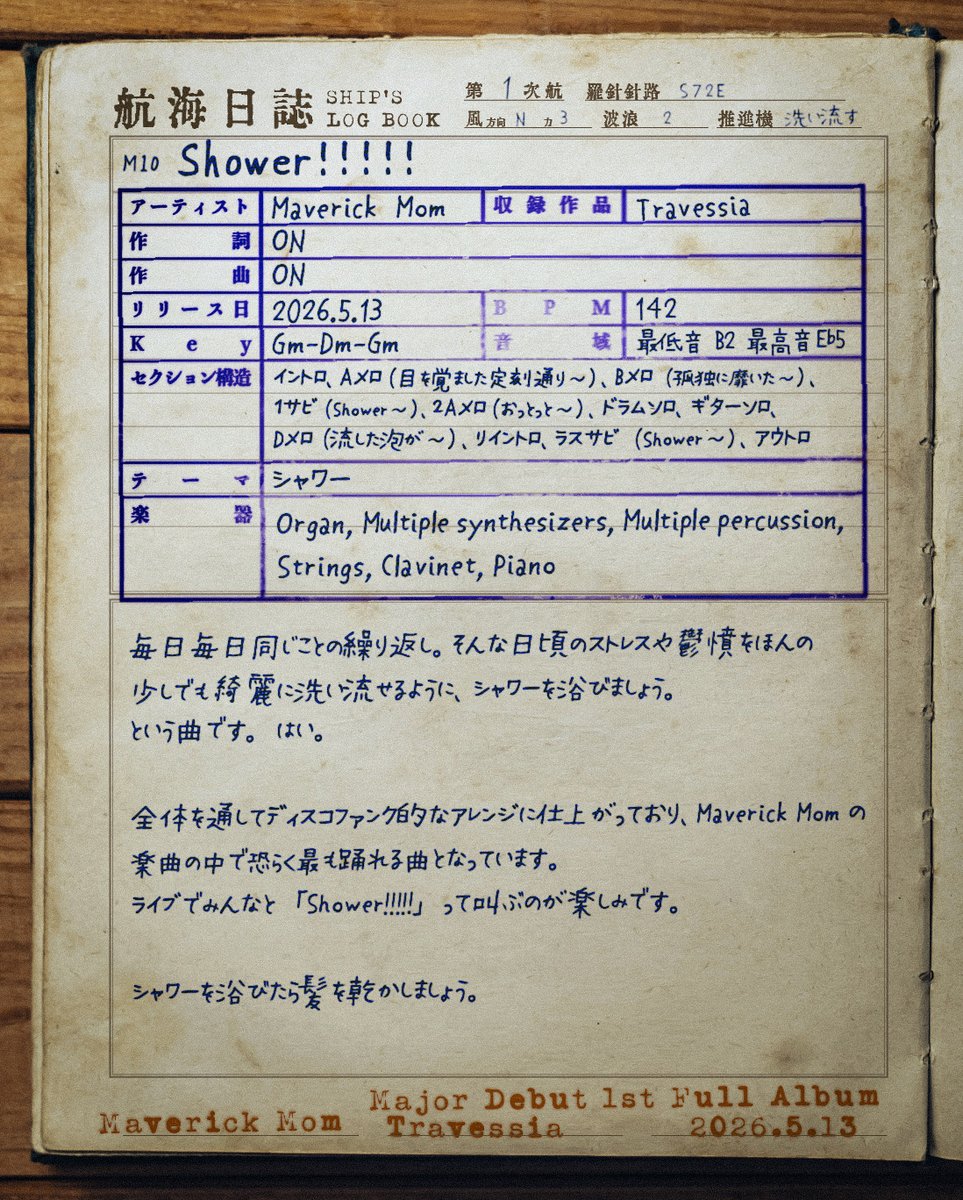 航海日誌 SHIP'S LOG BOOK
第1次航 羅針針路 S72E
風方向 N 力 3 波浪 2 推進機 洗い流す
M10 Shower!!!!!
アーティスト Maverick Mom 収録作品 Travessia
作詞 ON
作曲 ON
リリース日 2026.5.13 BPM 142
Key Gm-Dm-Gm 音域 最低音 B2 最高音 Eb5
セクション構造 イントロ、Aメロ（目を覚ました定刻通り〜）、Bメロ（孤独に靡いた〜）、
1サビ（Shower〜）、2Aメロ（おっとっと〜）、ドラムソロ、ギターソロ、
Dメロ（流した泡が〜）、リイントロ、ラスサビ（Shower〜）、アウトロ
テーマ シャワー
楽器 Organ, Multiple synthesizers, Multiple percussion,
Strings, Clavinet, Piano
毎日毎日同じことの繰り返し。そんな日頃のストレスや鬱憤をほんの
少しでも綺麗に洗い流せるように、シャワーを浴びましょう。
という曲です。はい。
全体を通してディスコファンク的なアレンジに仕上がっており、Maverick Momの
楽曲の中で恐らく最も踊れる曲となっています。
ライブでみんなと「Shower!!!!!」って叫ぶのが楽しみです。
シャワーを浴びたら髪を乾かしましょう。
Maverick Mom Major Debut 1st Full Album
Travessia 2026.5.13